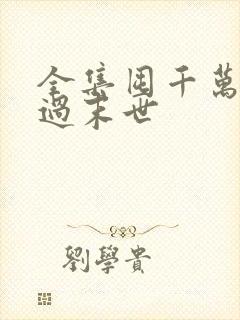 全集囤千萬
過末世
劉學貴